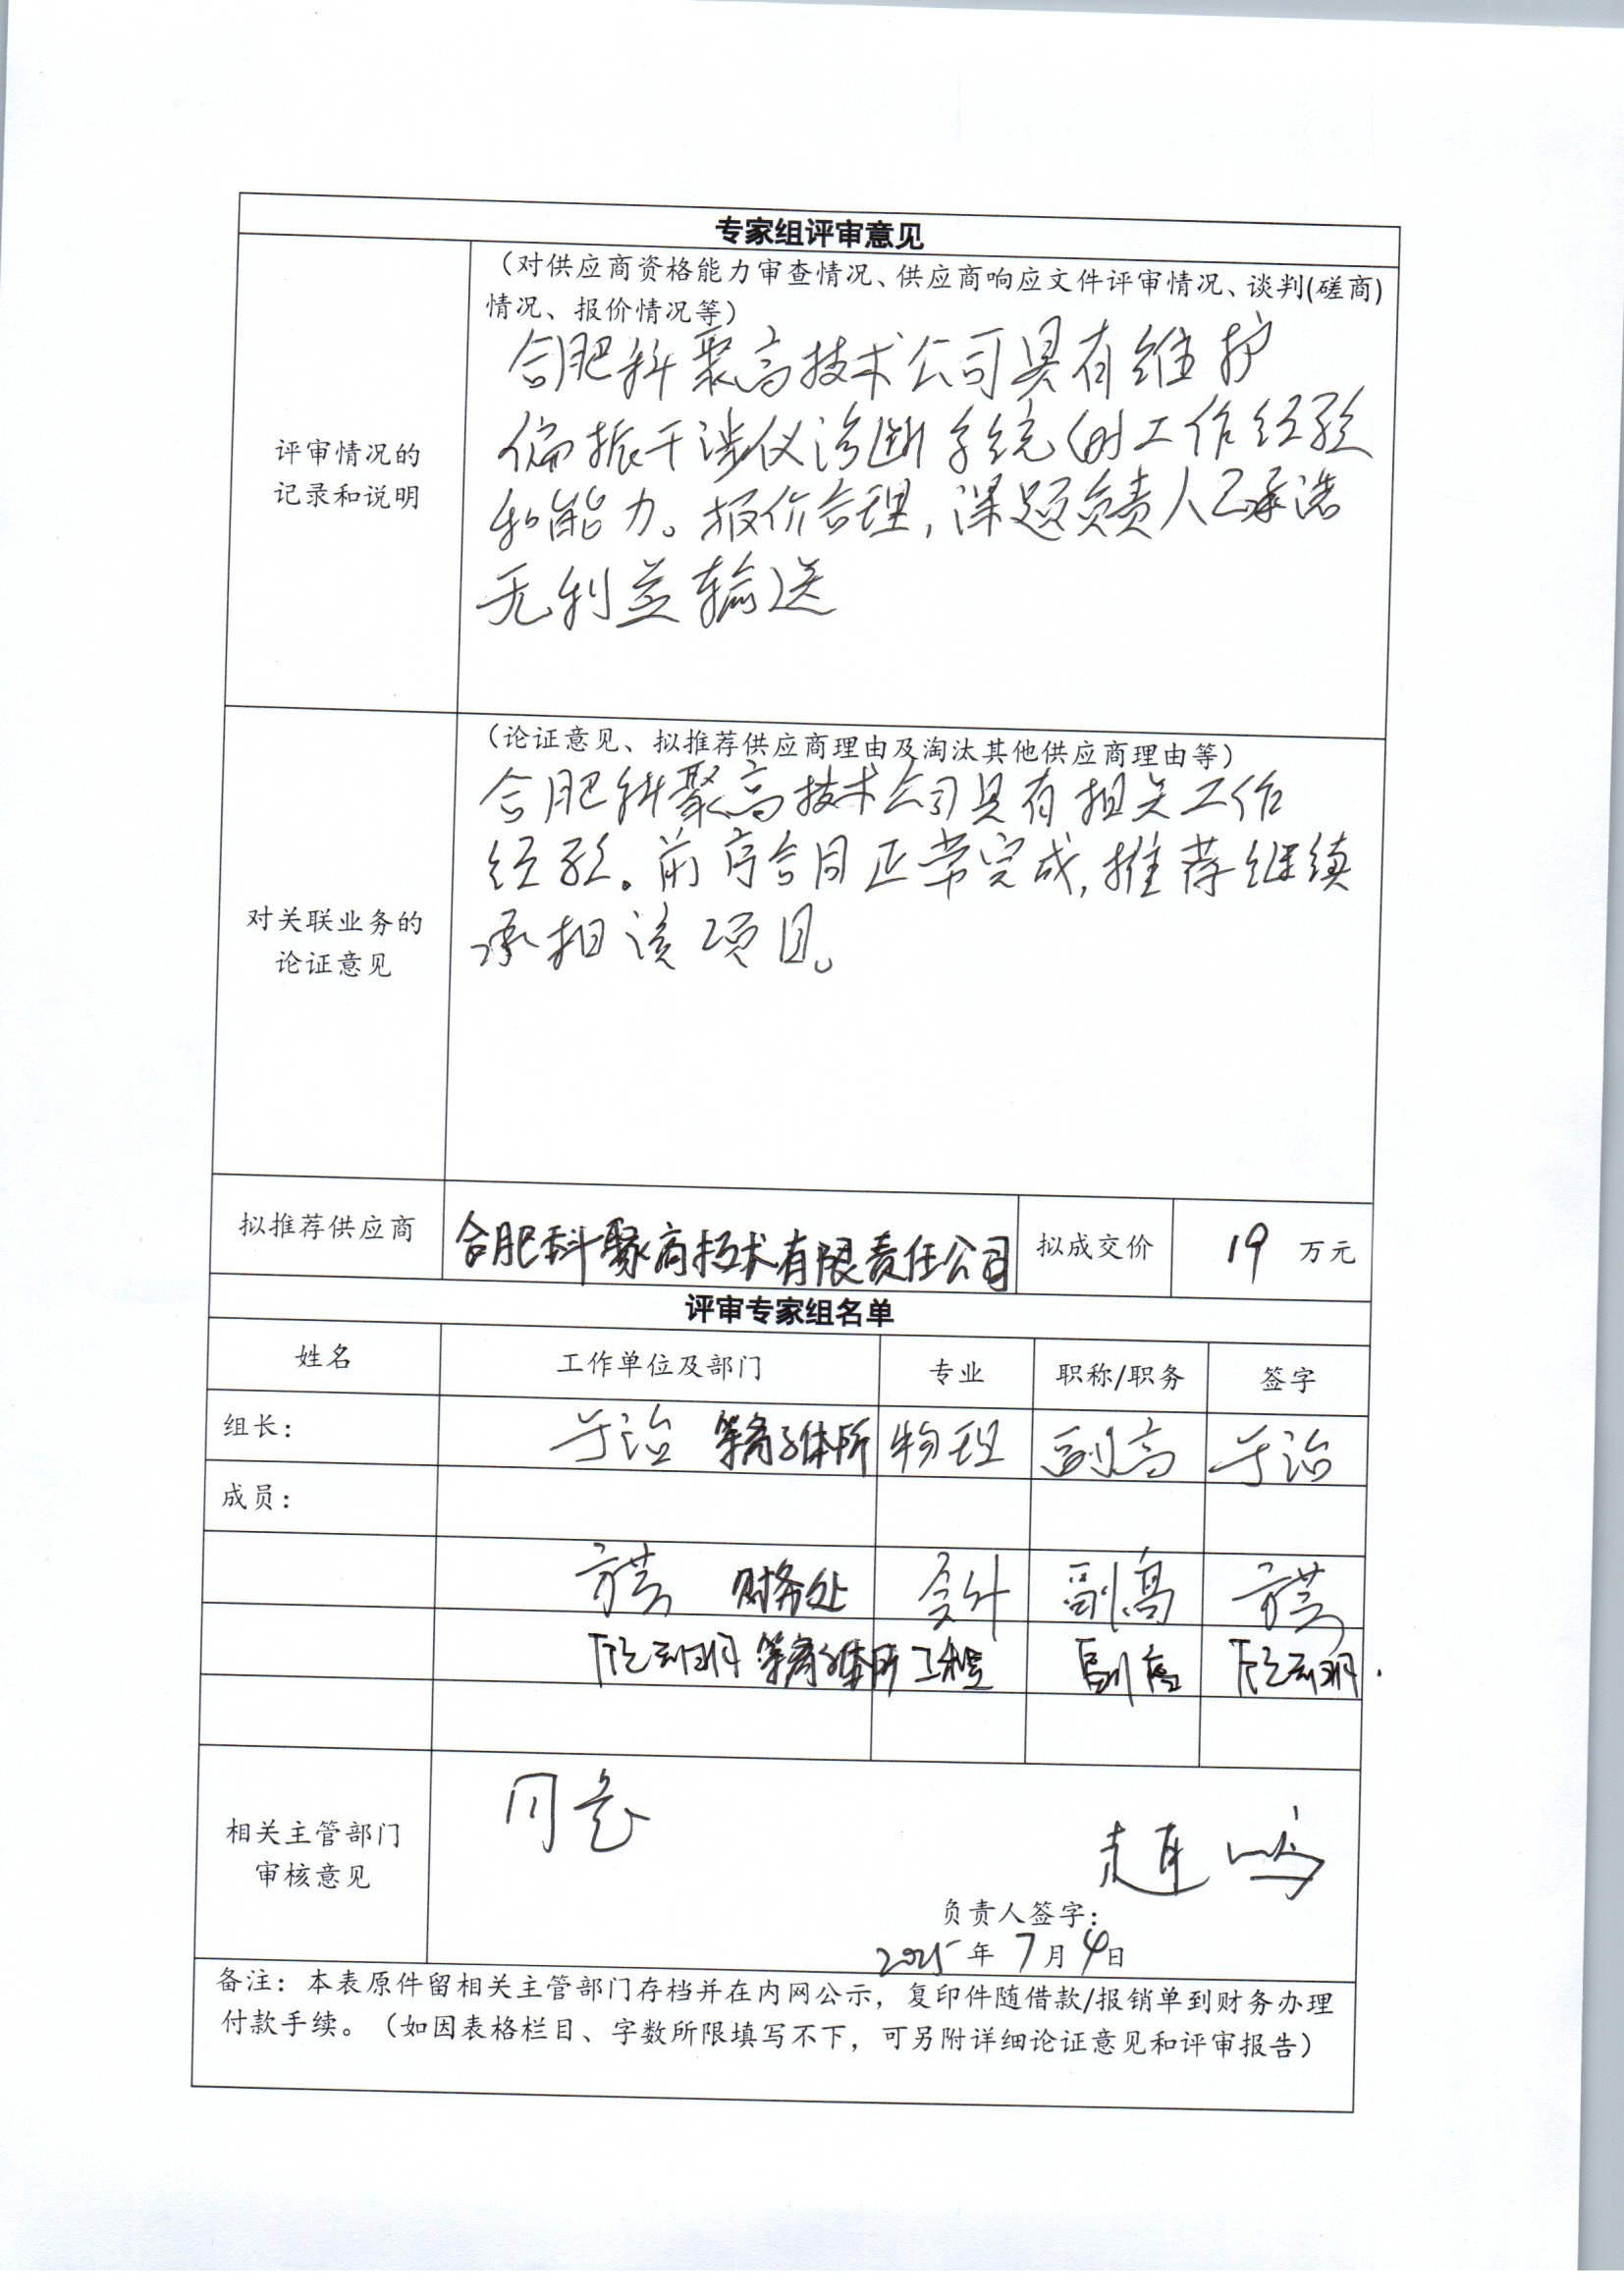 专家组评审意见
(对供应商资格能力审查情况、供应商响应文件评审情况、谈判(磋商)
情况、报价情况等)
合肥科聚高技术公司具有维护
偏振干涉仪诊断系统的工作经验
和能力。报价合理,课题负责人已承诺
无利益输送
评审情况的
记录和说明
(论证意见、拟推荐供应商理由及淘汰其他供应商理由等)
合肥科聚高技术公司具有相关工作
经验。前序合同正常完成,推荐继续
承担该项目。
对关联业务的
论证意见
拟推荐供应商 合肥科聚高技术有限责任公司 拟成交价 19 万元
评审专家组名单
姓名 工作单位及部门 专业 职称/职务 签字
组长: 于治 等离子体所 物理 副高 于治
成员:
财务处 会计 副高
等离子体所 工程 副高
同意
相关主管部门
审核意见
负责人签字:
2025年7月4日
备注:本表原件留相关主管部门存档并在内网公示,复印件随借款/报销单到财务办理
付款手续。(如因表格栏目、字数所限填写不下,可另附详细论证意见和评审报告)